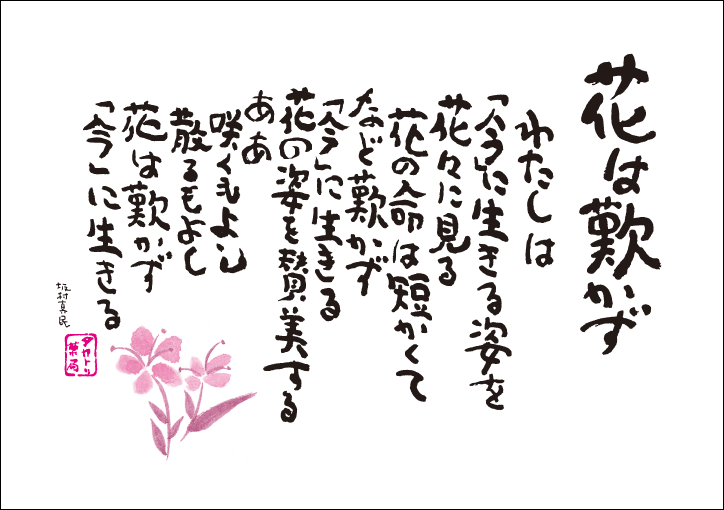 花は歎かず
わたしは
「今」に生きる姿を
花々に見る
花の命は短かくて
など歎かず
「今」に生きる
花の姿を賛美する
ああ
咲くもよし
散るもよし
花は歎かず
「今」に生きる
坂村真民
タカトリ
薬局